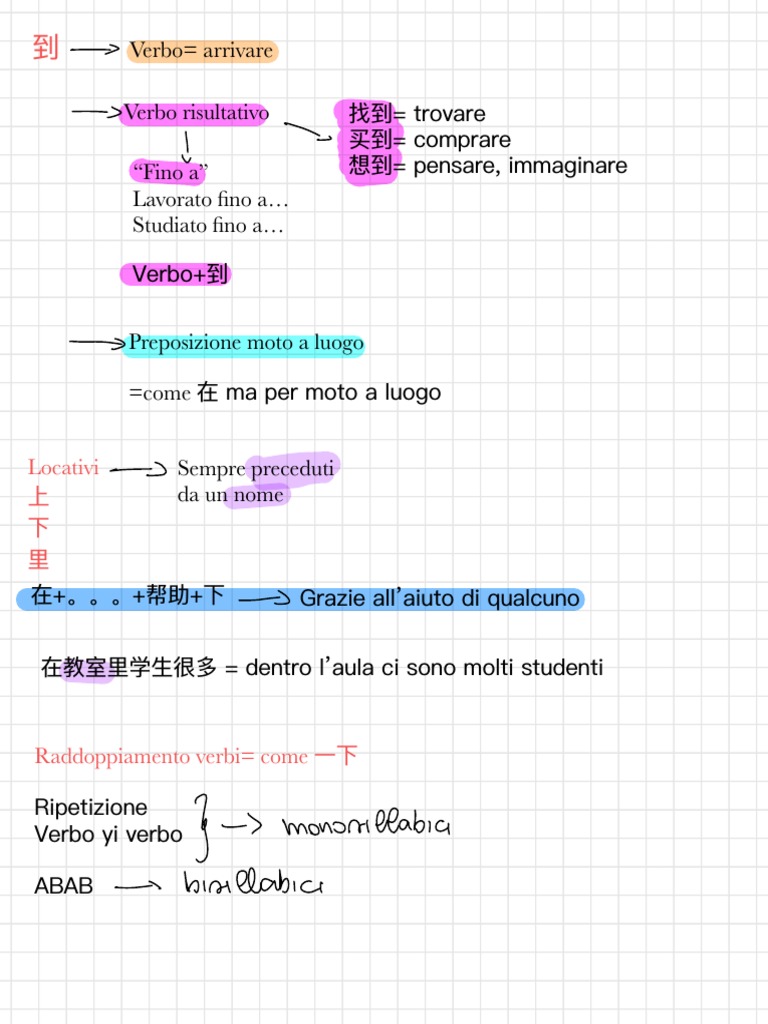 到 Verbo= arrivare
Verbo risultativo
找到= trovare
买到= comprare
想到= pensare, immaginare
“Fino a”
Lavorato fino a…
Studiato fino a…
Verbo+到
Preposizione moto a luogo
=come 在 ma per moto a luogo
Locativi
Sempre preceduti
da un nome
上
下
里
在+。。。+帮助+下 Grazie all’aiuto di qualcuno
在教室里学生很多 = dentro l’aula ci sono molti studenti
Raddoppiamento verbi= come 一下
Ripetizione
Verbo yi verbo
monosillabici
ABAB bisillabici